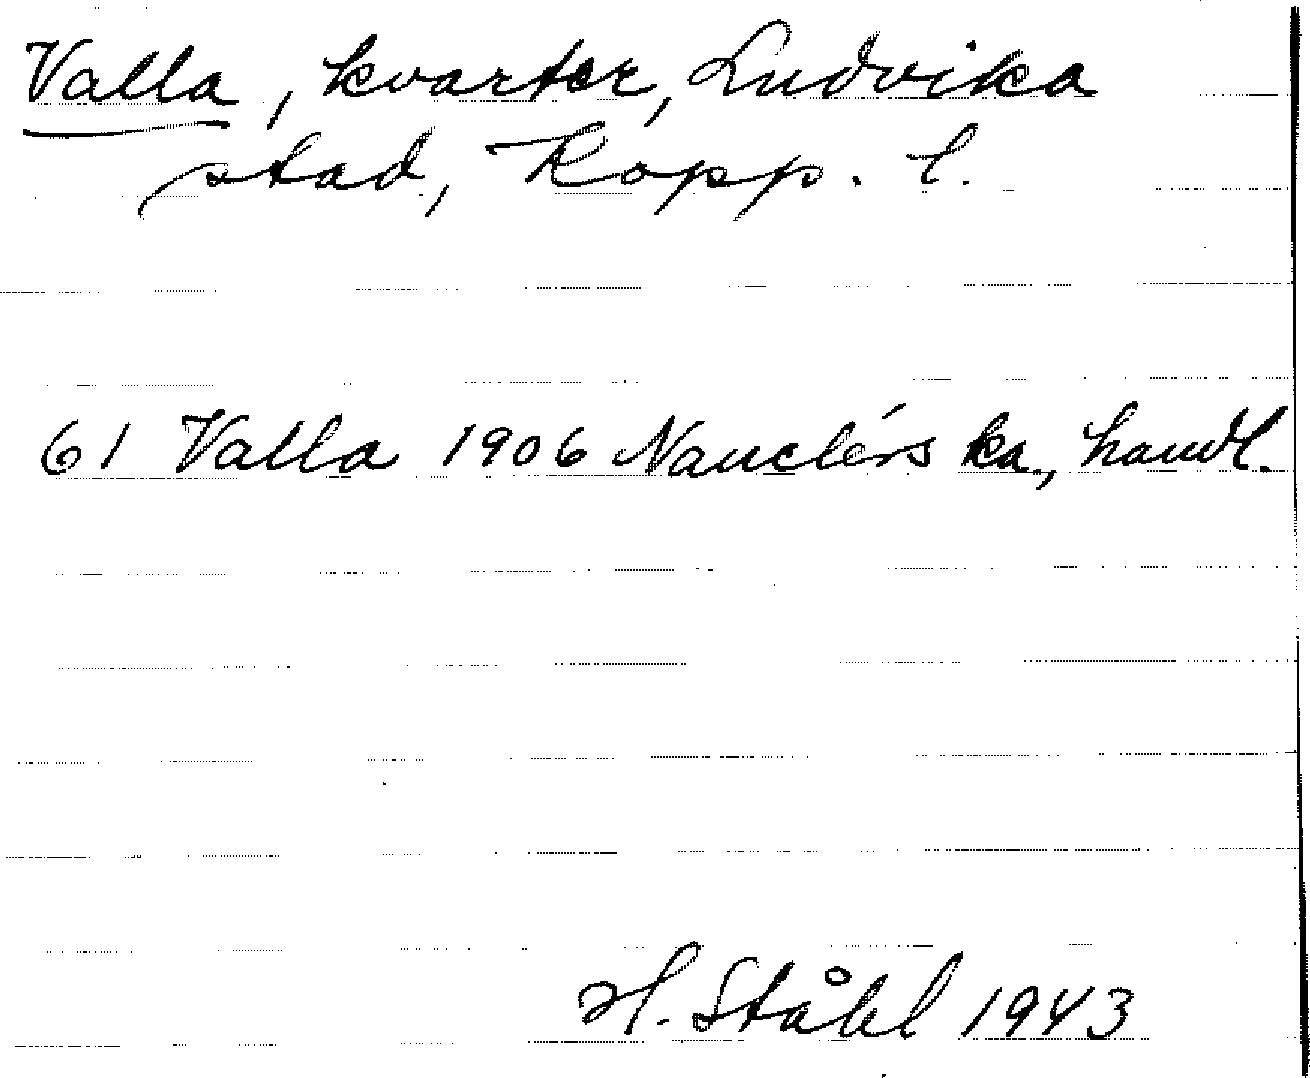 Valla, kvarter, Ludvika
stad, Kopp. l.
61 Valla 1906 Nauclérs ka., handl.
H. Ståhl 1943